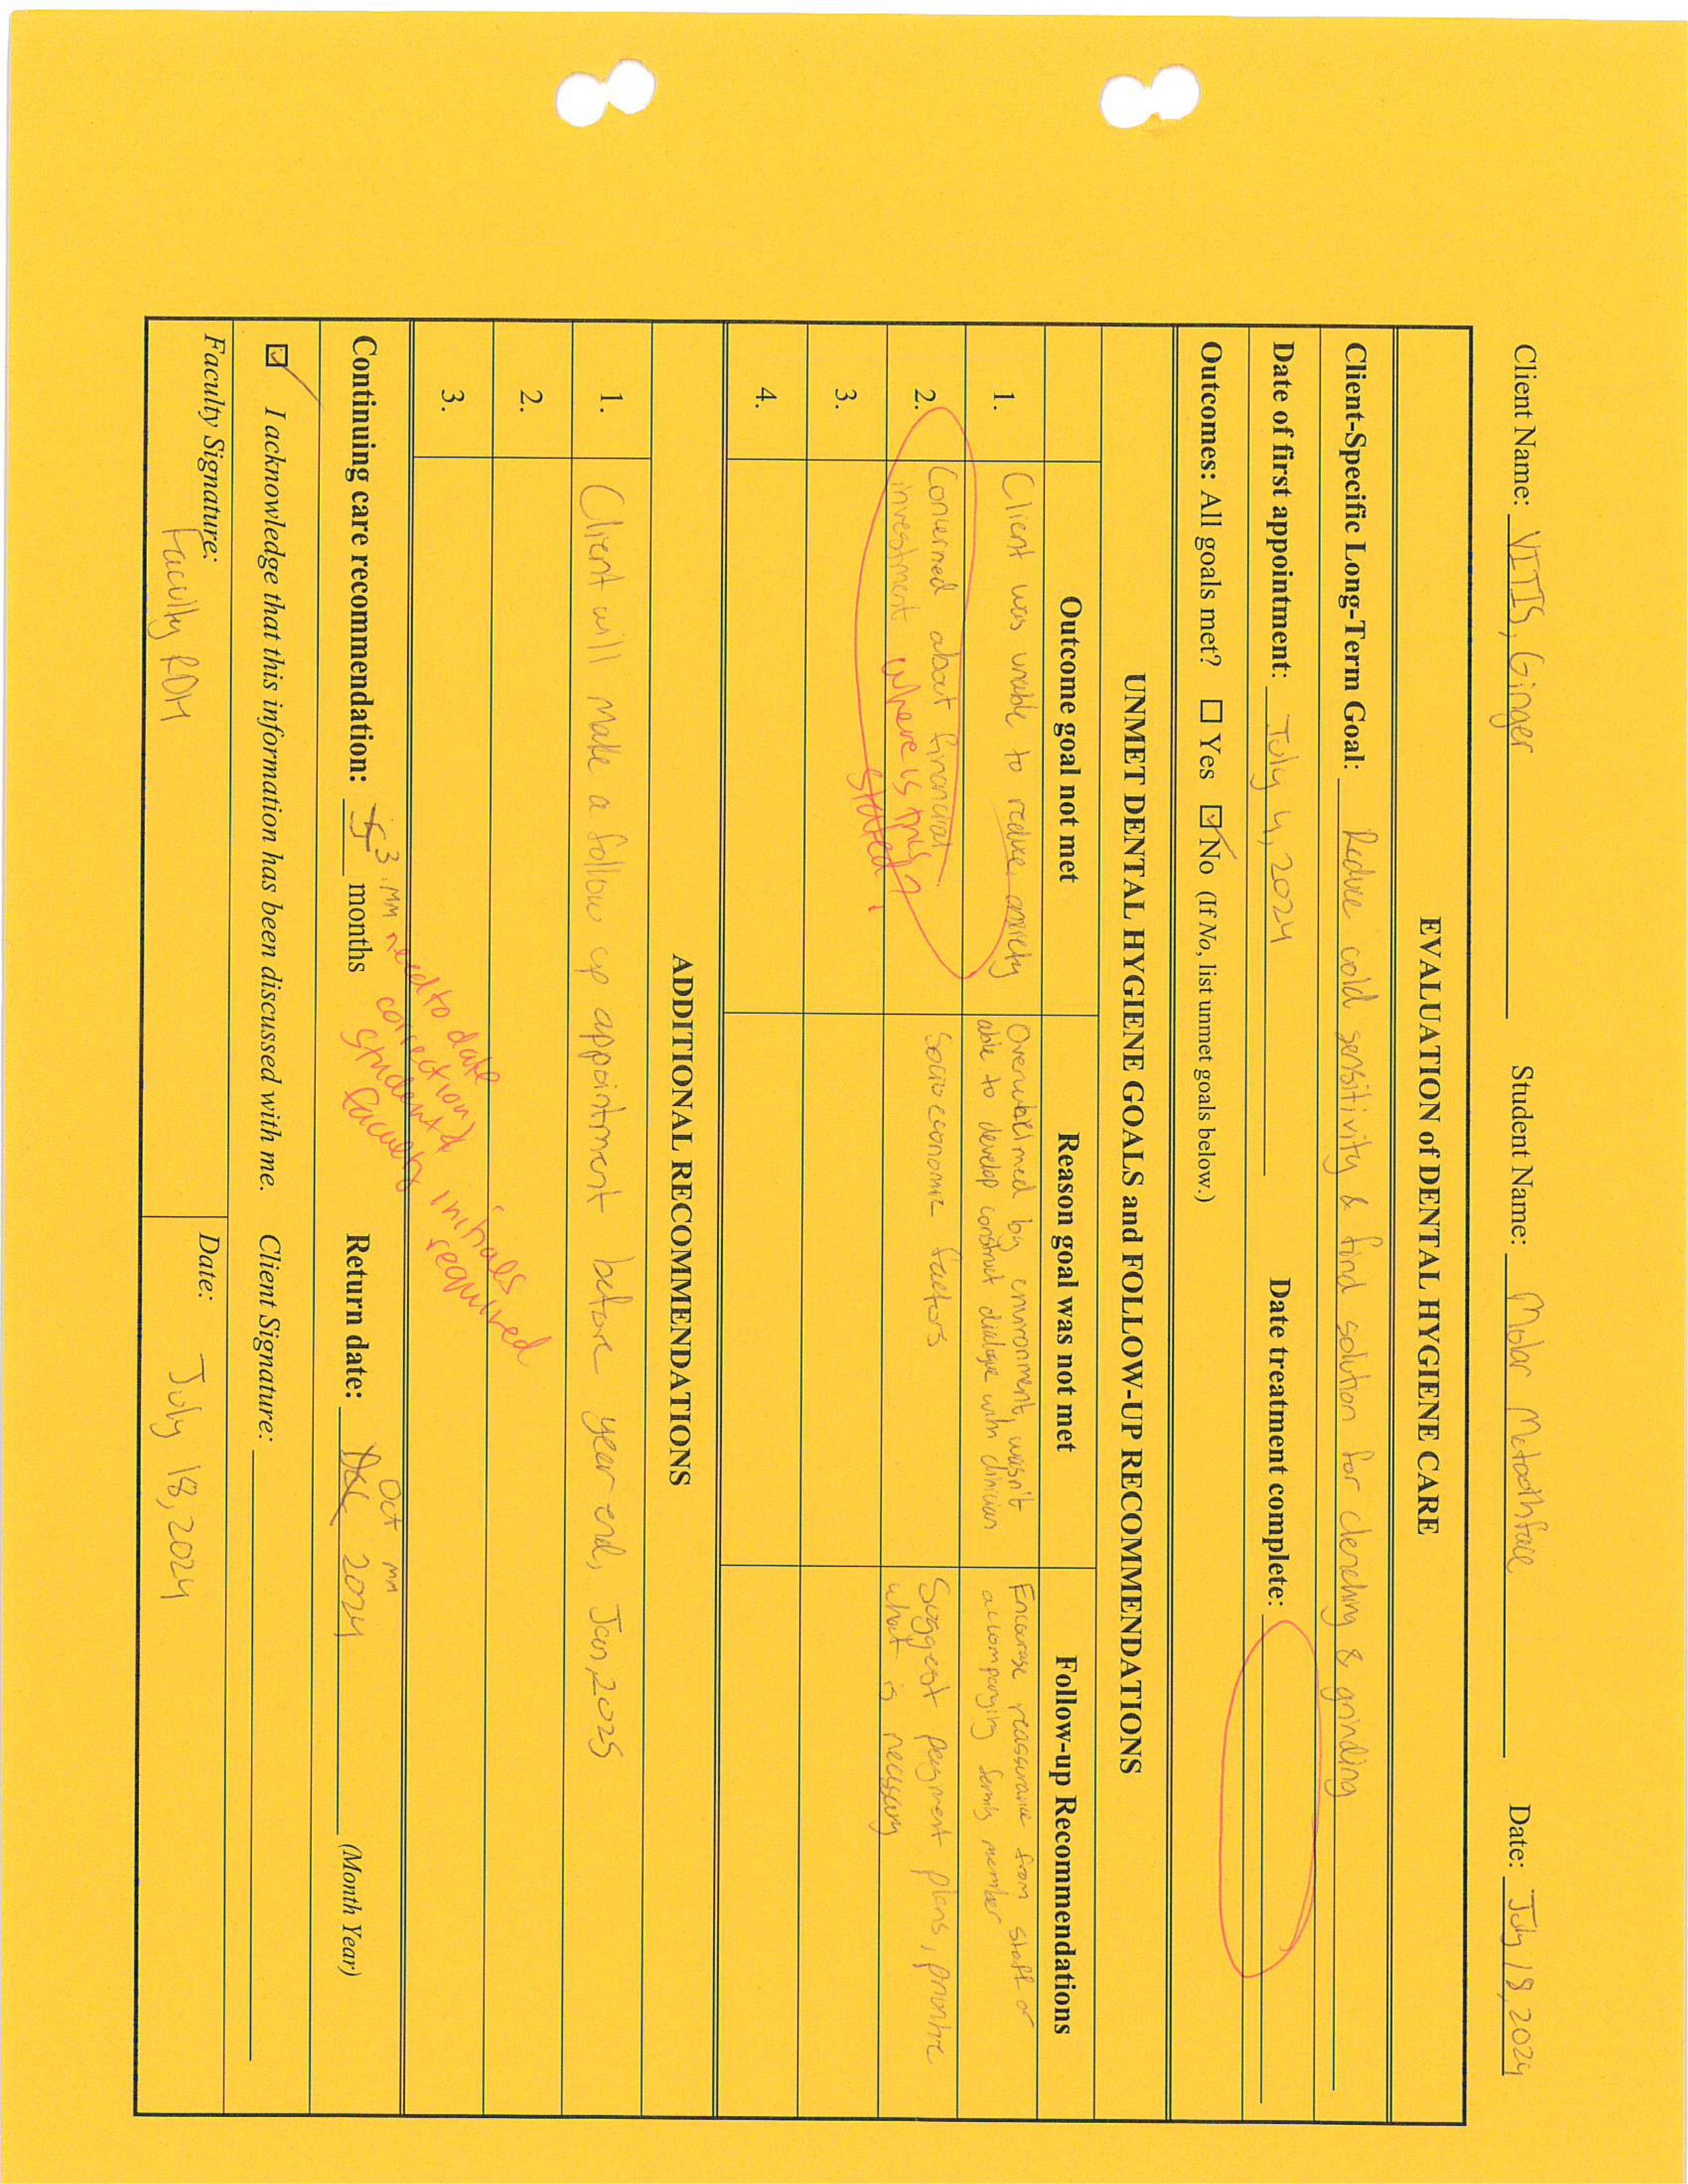 Client Name: VITIS, Ginger Student Name: Molar Mctoothface Date: July 18, 2024
EVALUATION of DENTAL HYGIENE CARE
Client-Specific Long-Term Goal: Reduce cold sensitivity & find solution for clenching & grinding
Date of first appointment: July 4, 2024 Date treatment complete:
Outcomes: All goals met? ☐ Yes ☑ No (If No, list unmet goals below.)
UNMET DENTAL HYGIENE GOALS and FOLLOW-UP RECOMMENDATIONS
Outcome goal not met Reason goal was not met Follow-up Recommendations
1. Client was unable to reduce anxiety
Overwhelmed by environment, wasn't
able to develop construct dialogue with clinician
Encourage reassurance from staff or
accompanying family member
2. Concerned about financial
investment
where is this
stated?
Socioeconomic factors
Suggest payment plans, prioritize
what is necessary
3.
4.
ADDITIONAL RECOMMENDATIONS
1. Client will make a follow up appointment before year end, Jan, 2025
2.
3.
Continuing care recommendation: 3 MM months Return date: Dec Oct MM 2024 (Month Year)
need to date
correction,
student &
faculty initials
required
☑ I acknowledge that this information has been discussed with me. Client Signature:
Faculty Signature: Faculty RDH Date: July 18, 2024